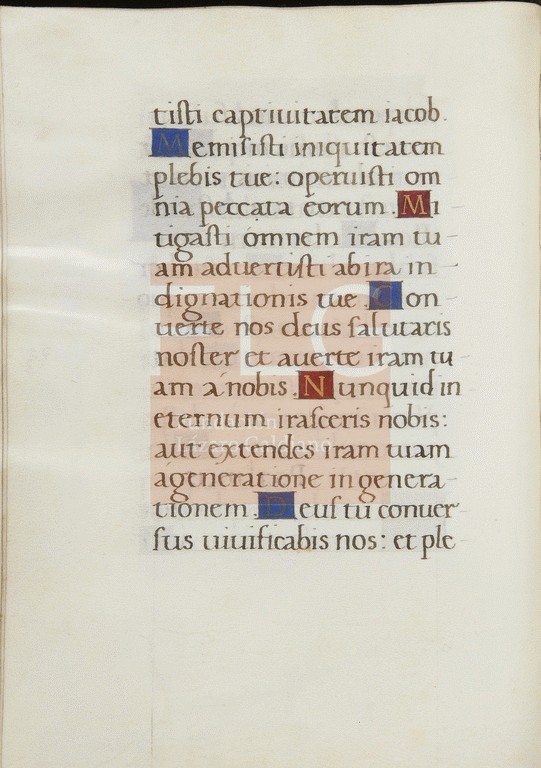 tisti captiuitatem iacob.
Memisisti iniquitatem
plebis tue: operuisti om
nia peccata eorum. Mi
tigasti omnem iram tu
am aduertisti ab ira in
dignationis tue. Con
uerte nos deus salutaris
noster et auerte iram tu
am á nobis. Nunquid in
eternum irasceris nobis:
aut extendes iram tuam
á generatione in genera
tionem. Deus tu conuer
sus uiuificabis nos: et ple
FLG
Lázaro Galdiano